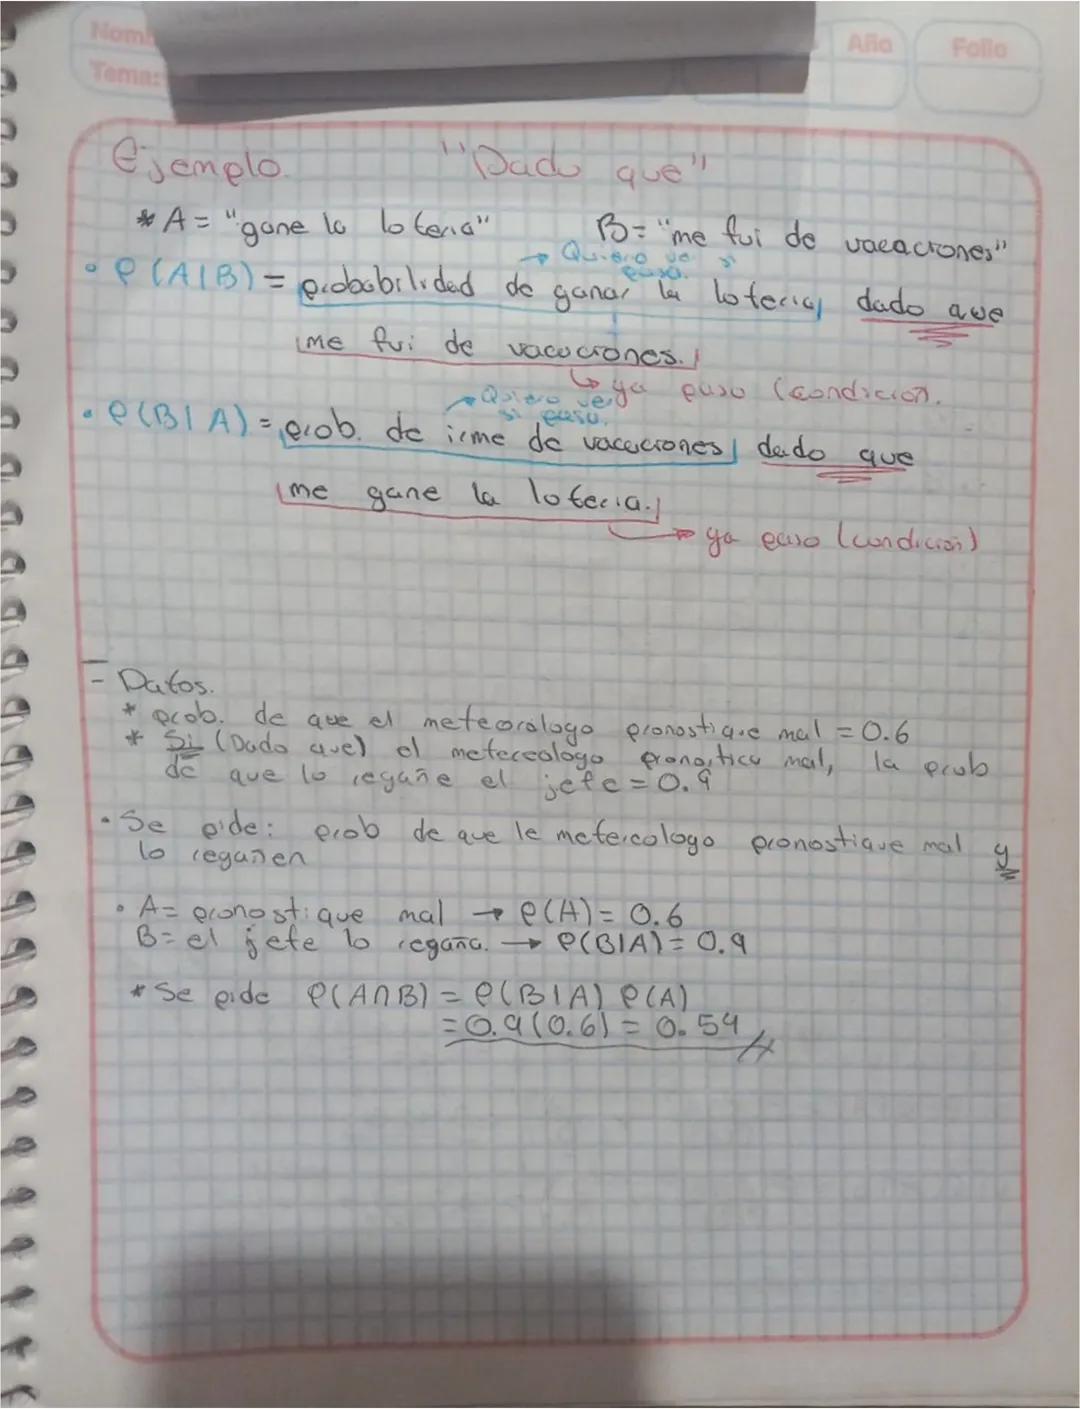 Nom
Año
Folio
Tema:
Ejemplo. "Dado que"
* A = "gane la loteria" B = "me fui de vacaciones"
→ Quiero ver si
pasa.
• P(A|B) = probabilidad de ganar la loteria, dado que
me fui de vacaciones.
↳ ya paso (condicion).
→ Quiero ver
si pasa.
• P(B|A) = prob. de irme de vacaciones, dado que
me gane la loteria.
→ ya paso (condicion)
- Datos.
* prob. de que el meteorólogo pronostique mal = 0.6
* Si (Dado que) el metereologo pronostica mal, la prob
de que lo regañe el jefe = 0.9
• Se pide: prob de que le metereologo pronostique mal y
lo regañen
• A = pronostique mal → P(A) = 0.6
B = el jefe lo regaña. → P(B|A) = 0.9
* Se pide P(A∩B) = P(B|A) P(A)
= 0.9(0.6) = 0.54